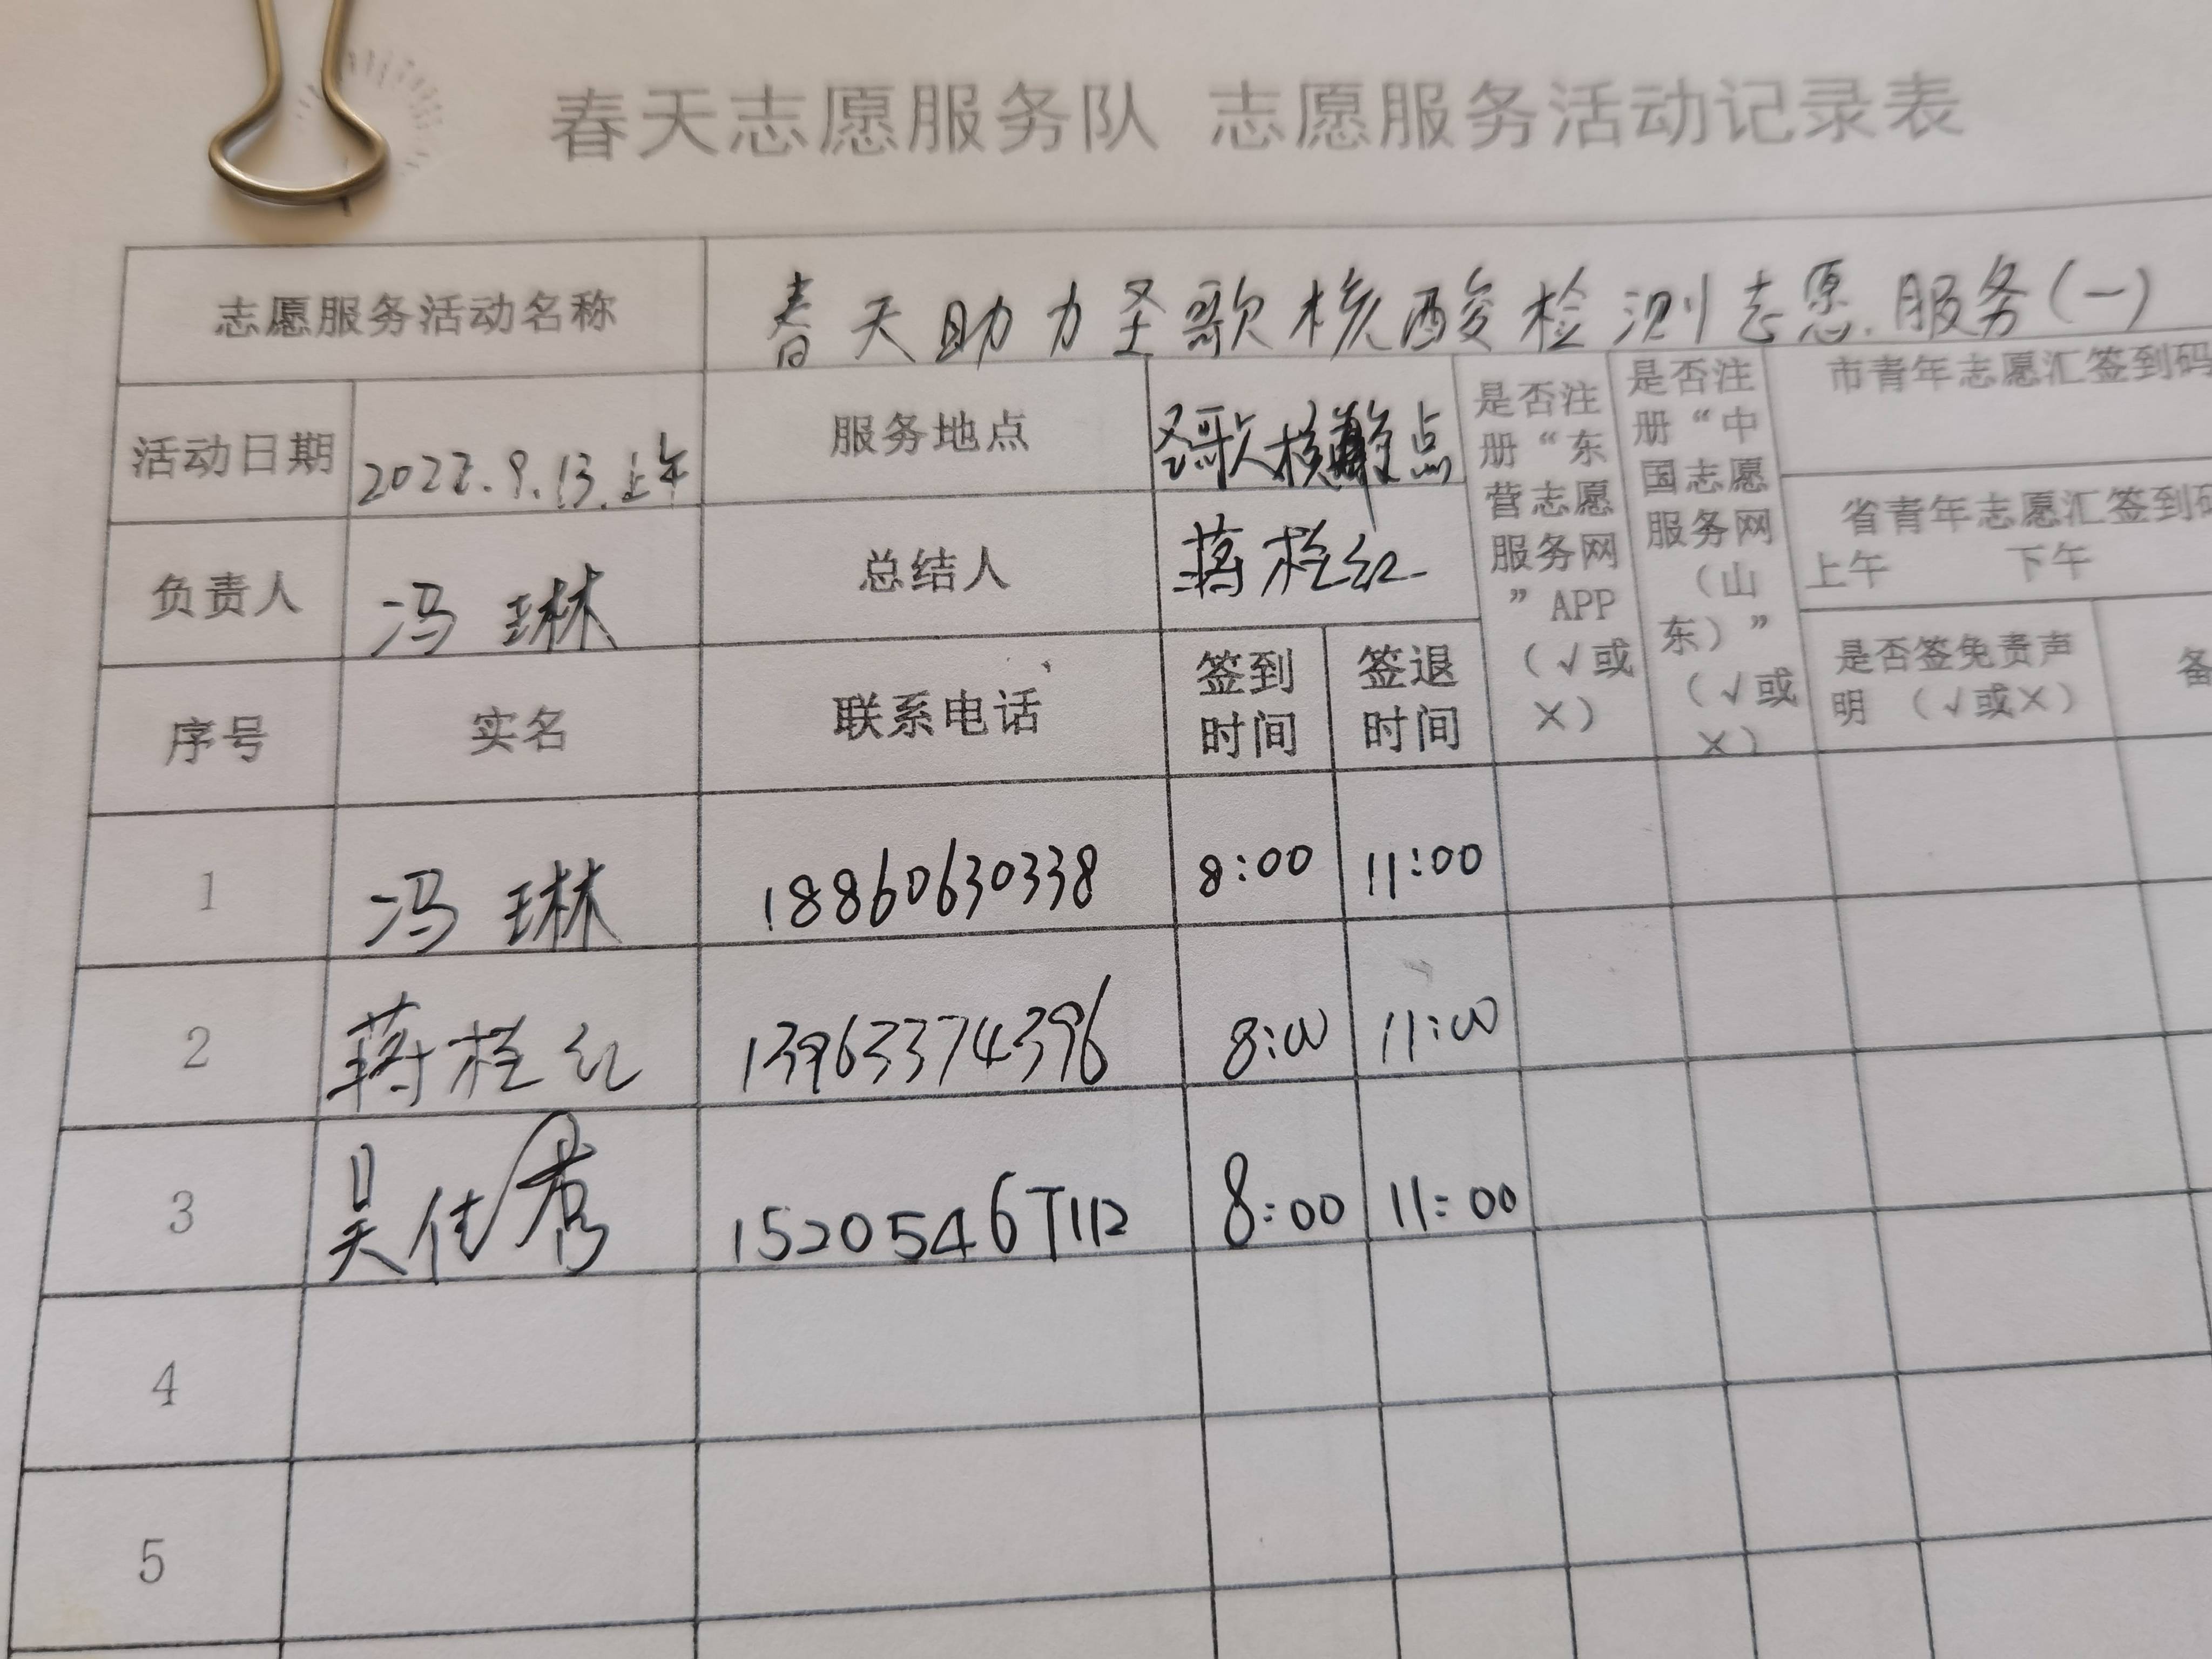 春天志愿服务队 志愿服务活动记录表
志愿服务活动名称 春天助力圣歌核酸检测志愿服务(一)
活动日期 2022.9.13.上午 服务地点 圣歌核酸点
是否注册“东营志愿服务网”APP(√或×)
是否注册“中国志愿服务网(山东)”(√或×)
市青年志愿汇签到码
省青年志愿汇签到码
上午 下午
负责人 冯琳 总结人 蒋栓红
序号 实名 联系电话 签到时间 签退时间 是否签免责声明(√或×) 备
1 冯琳 18860630338 8:00 11:00
2 蒋栓红 13963374396 8:00 11:00
3 吴佳秀 15205467112 8:00 11:00
4
5